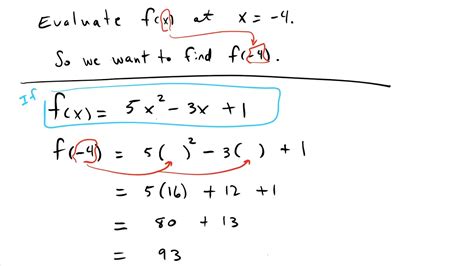 Evaluate f(x) at x = -4.
So we want to find f(-4).
If
f(x) = 5x² - 3x + 1
f(-4) = 5( )² - 3( ) + 1
= 5(16) + 12 + 1
= 80 + 13
= 93